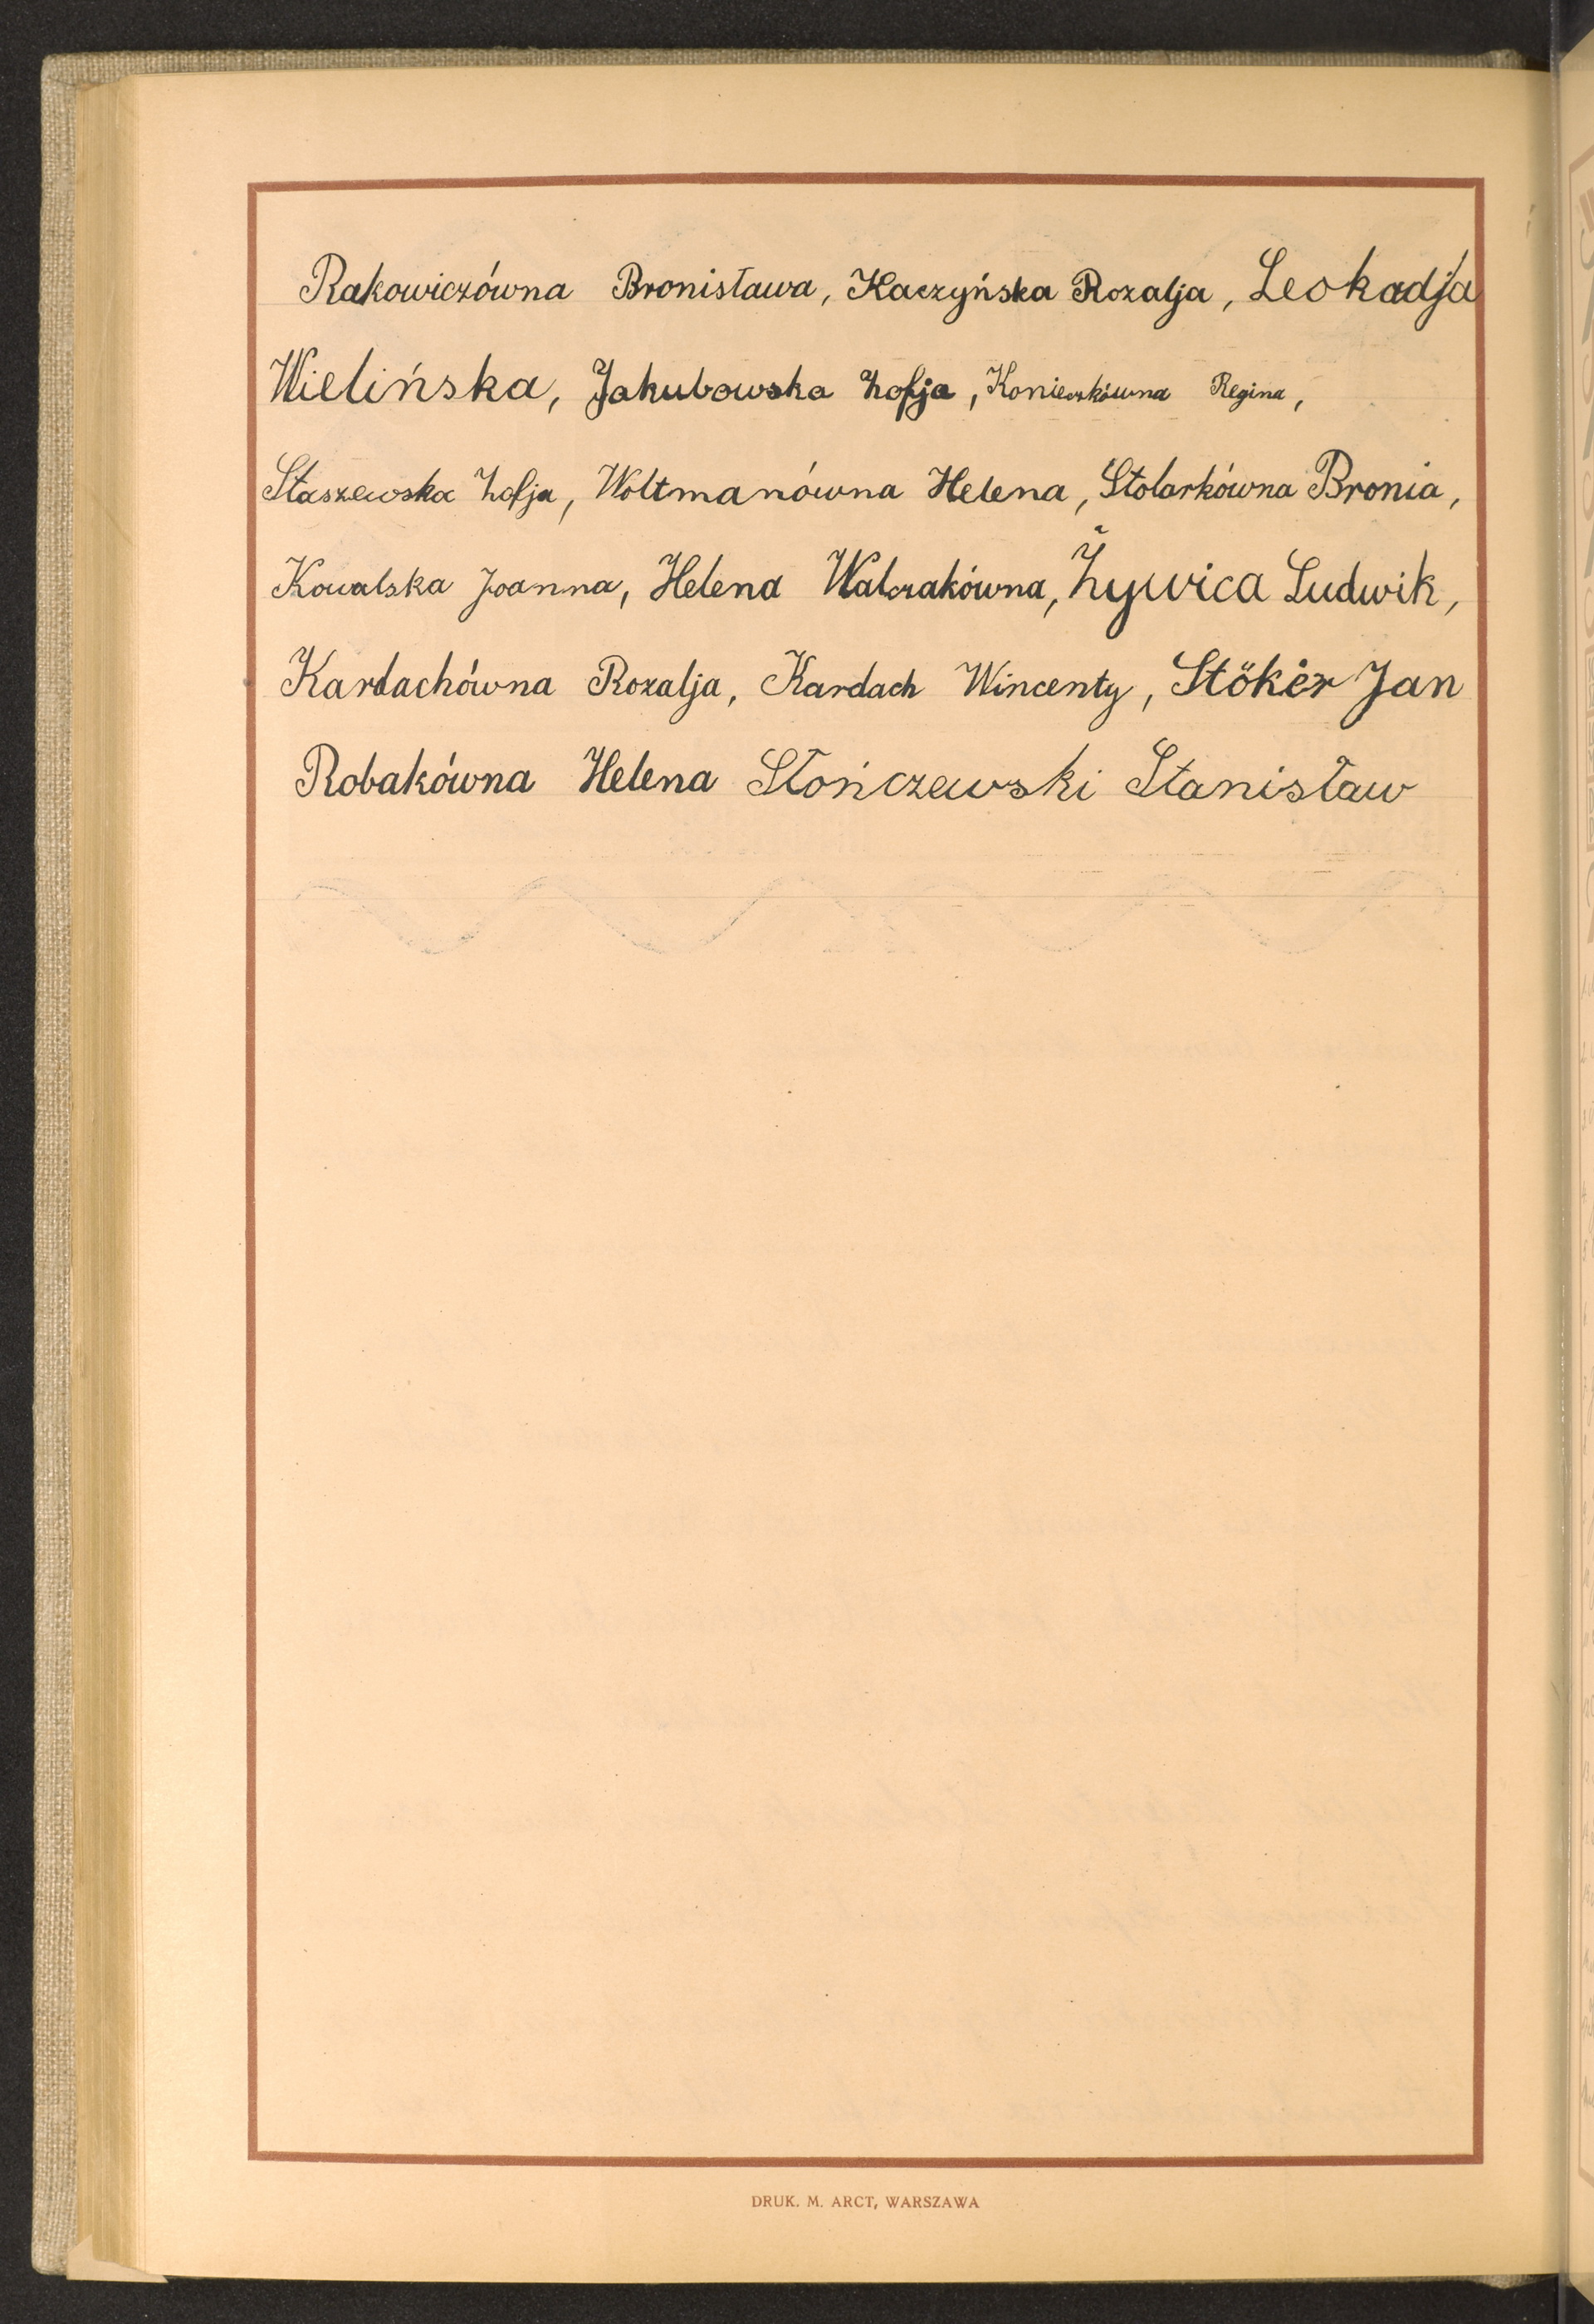 Rakowiczówna Bronisława, Kaczyńska Rozalja, Leokadja
Wielińska, Jakubowska Zofja, Konieczkówna Regina,
Staszewska Zofja, Woltmanówna Helena, Stolarkówna Bronia,
Kowalska Joanna, Helena Walczakówna, Żywica Ludwik,
Kardachówna Rozalja, Kardach Wincenty, Stöker Jan
Robakówna Helena Słończewski Stanisław
DRUK. M. ARCT, WARSZAWA